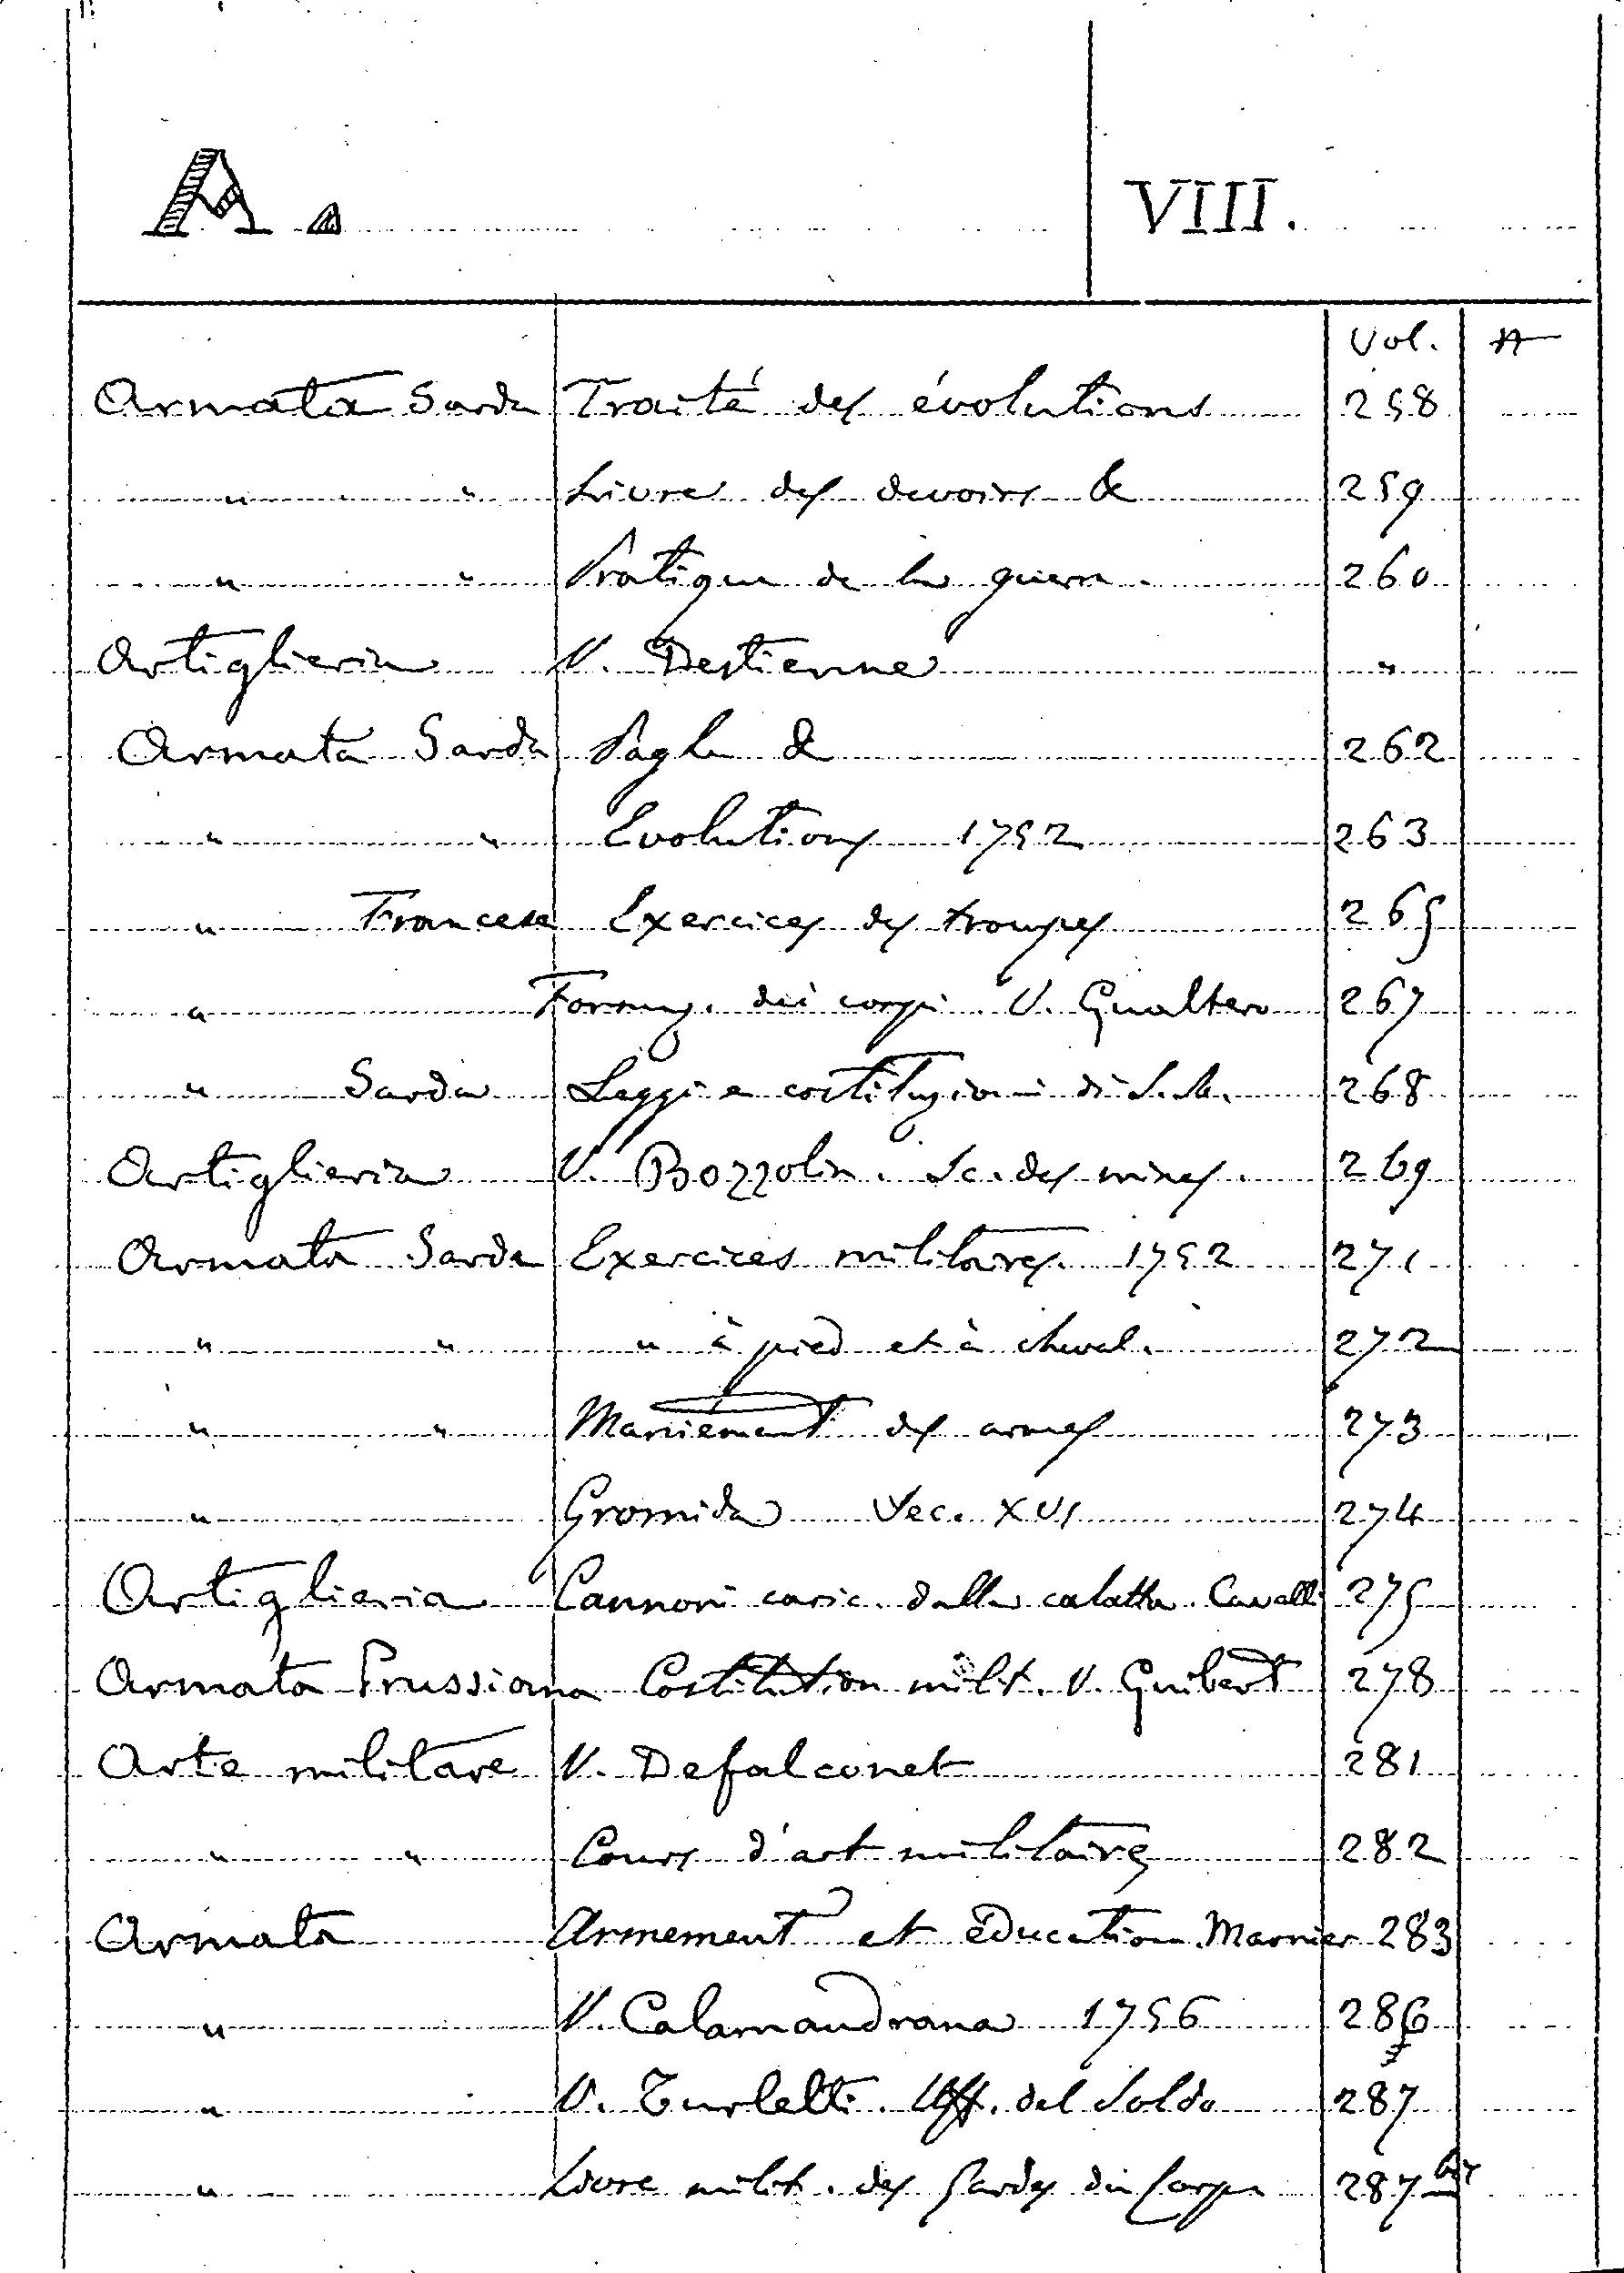 A. VIII.
Vol. N
Armata Sarda Traité des évolutions 258
" " Livre des devoirs & 259
" " Pratique de la guerre. 260
Artiglieria V. Destienne "
Armata Sarda Paghe & 262
" " Evolutions 1752 263
" Francese Exercices des troupes 265
" Formaz. dei corpi. V. Gualtero 267
" Sarda Leggi e costituzioni di S. M. 268
Artiglieria V. Bozzolin. Sc. des mines. 269
Armata Sarda Exercices militaires. 1752 271
" " " à pied et à cheval. 272
" " Maniement des armes 273
" Gromida Sec. XVI 274
Artiglieria Cannoni caric. dalla culatta. Cavalli 275
Armata Prussiana Costitution milit. V. Guibert 278
Arte militare V. Defalconet 281
" " Cours d'art militaire 282
Armata Armement et éducation. Marnier 283
" V. Calamandrana 1756 286
" V. Turletti. Uff. del Soldo 287
" Livre milit. des Gardes du Corps 287 bis